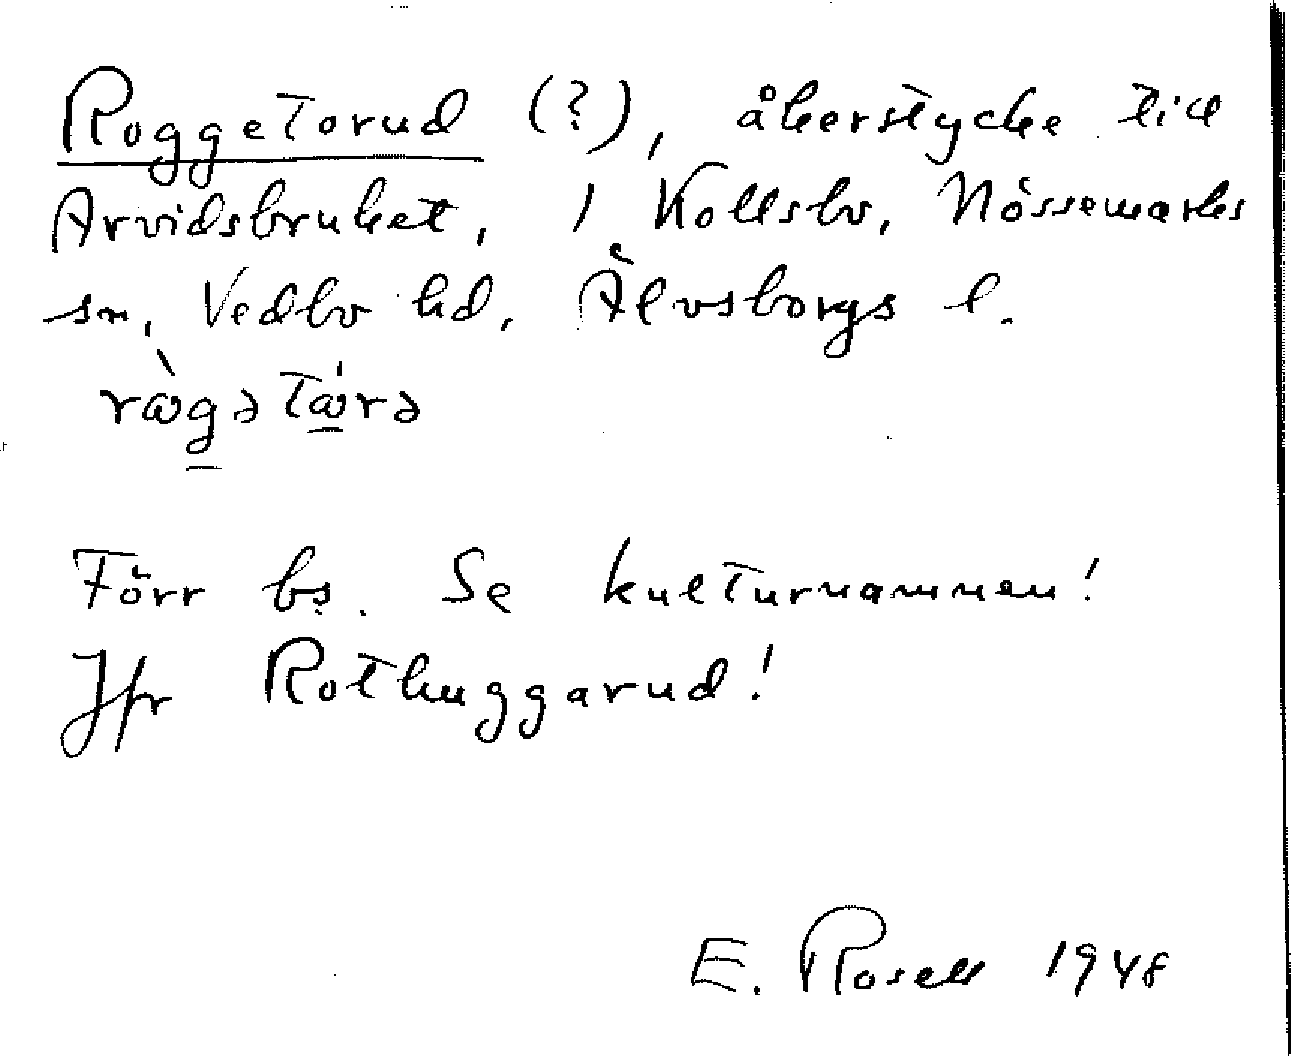 Roggetorud (?), åkerstycke till
Arvidsbruket, 1 Kollsbo, Nössemarks
sn, Vedbo hd, Älvsborgs l.
rògə tórə
Förr bs. Se kulturnamnen!
Jfr Rothuggarud!
E. Rosell 1948